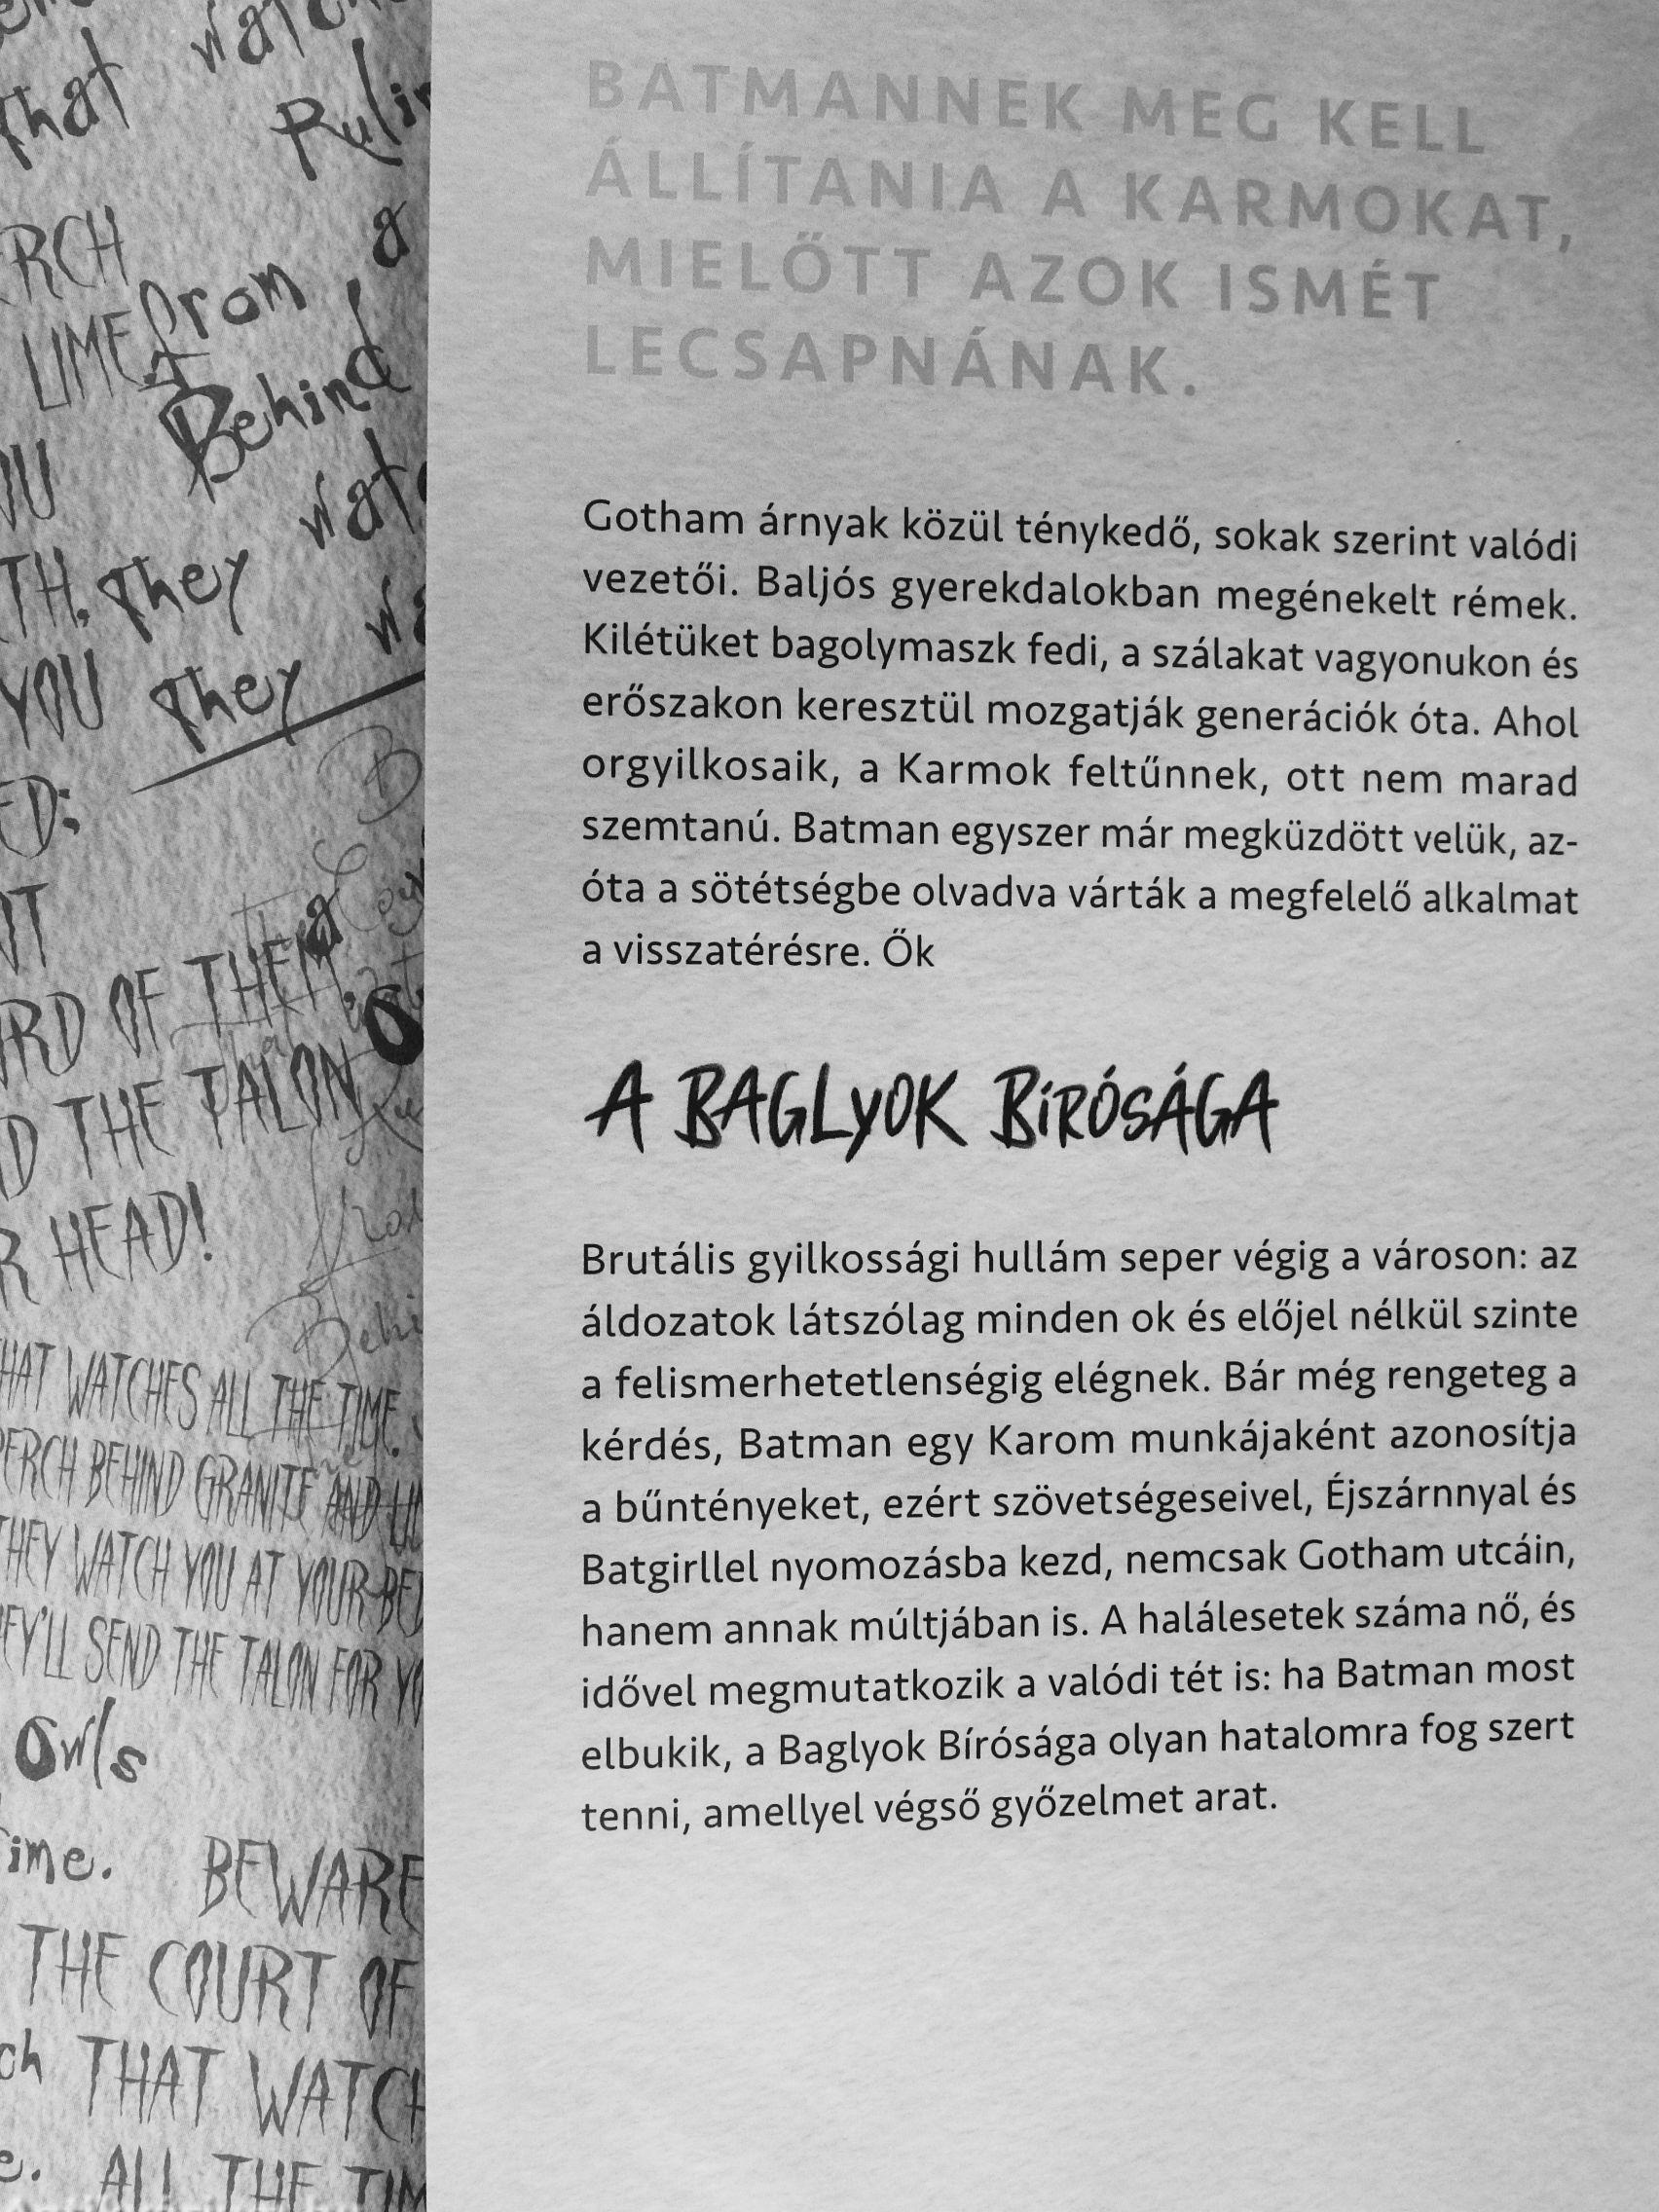 that watch
Rulin
RCH a
LIME from
Behind
watc
TH. They
YOU They
ED:
RD OF THEM.
THE TALON
HEAD!
HAT WATCHES ALL THE TIME.
PERCH BEHIND GRANITE AND LI
THEY WATCH YOU AT YOUR BED
EY'LL SEND THE TALON FOR YO
Owls
ime. BEWARE
THE COURT OF
ch THAT WATCH
e. ALL THE TIM
BATMANNEK MEG KELL
ÁLLÍTANIA A KARMOKAT,
MIELŐTT AZOK ISMÉT
LECSAPNÁNAK.
Gotham árnyak közül ténykedő, sokak szerint valódi
vezetői. Baljós gyerekdalokban megénekelt rémek.
Kilétüket bagolymaszk fedi, a szálakat vagyonukon és
erőszakon keresztül mozgatják generációk óta. Ahol
orgyilkosaik, a Karmok feltűnnek, ott nem marad
szemtanú. Batman egyszer már megküzdött velük, az-
óta a sötétségbe olvadva várták a megfelelő alkalmat
a visszatérésre. Ők
A BAGLYOK BÍRÓSÁGA
Brutális gyilkossági hullám seper végig a városon: az
áldozatok látszólag minden ok és előjel nélkül szinte
a felismerhetetlenségig elégnek. Bár még rengeteg a
kérdés, Batman egy Karom munkájaként azonosítja
a bűntényeket, ezért szövetségeseivel, Éjszárnnyal és
Batgirllel nyomozásba kezd, nemcsak Gotham utcáin,
hanem annak múltjában is. A halálesetek száma nő, és
idővel megmutatkozik a valódi tét is: ha Batman most
elbukik, a Baglyok Bírósága olyan hatalomra fog szert
tenni, amellyel végső győzelmet arat.